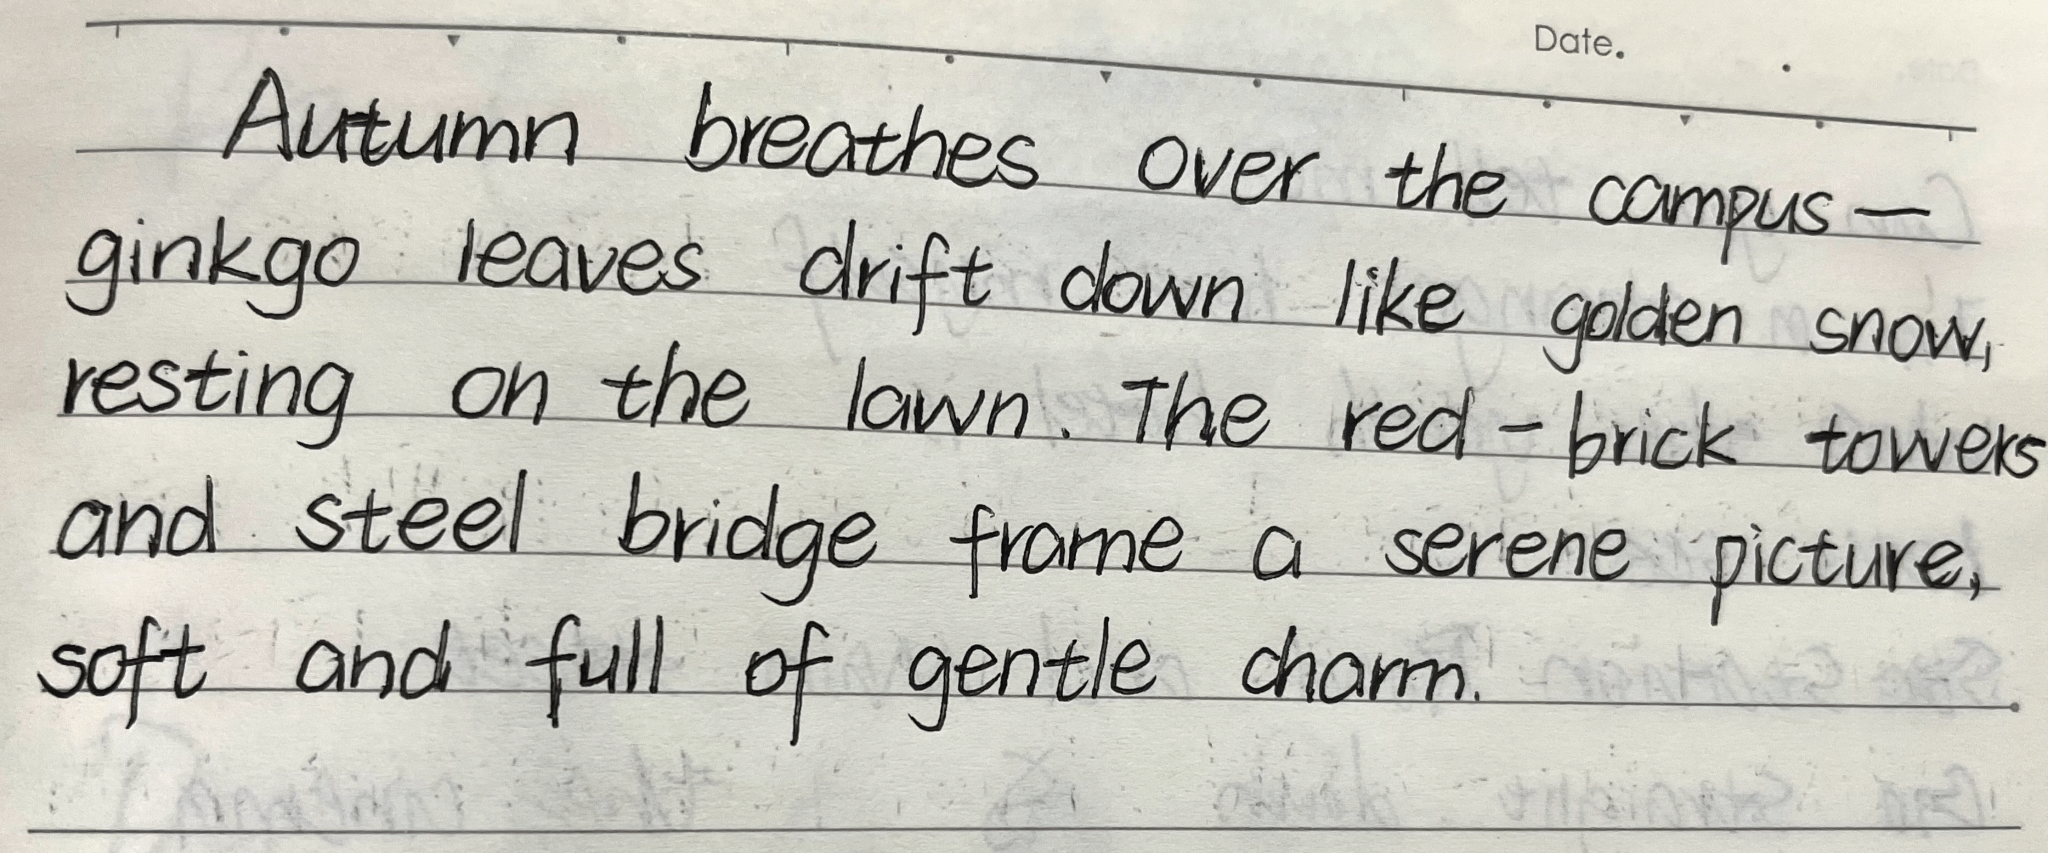 Date.
Autumn breathes over the campus—
ginkgo leaves drift down like golden snow,
resting on the lawn. The red-brick towers
and steel bridge frame a serene picture,
soft and full of gentle charm.